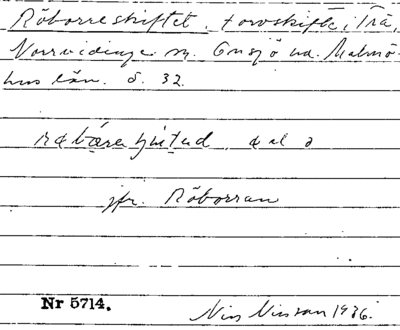 Röborreskiftet, torvskifte, i Trä,
Norrvidinge sn. Onsjö hd. Malmö-
hus län. s. 32.
jfr. Röborran
Nr 5714.
Nils Nilsson 1936.